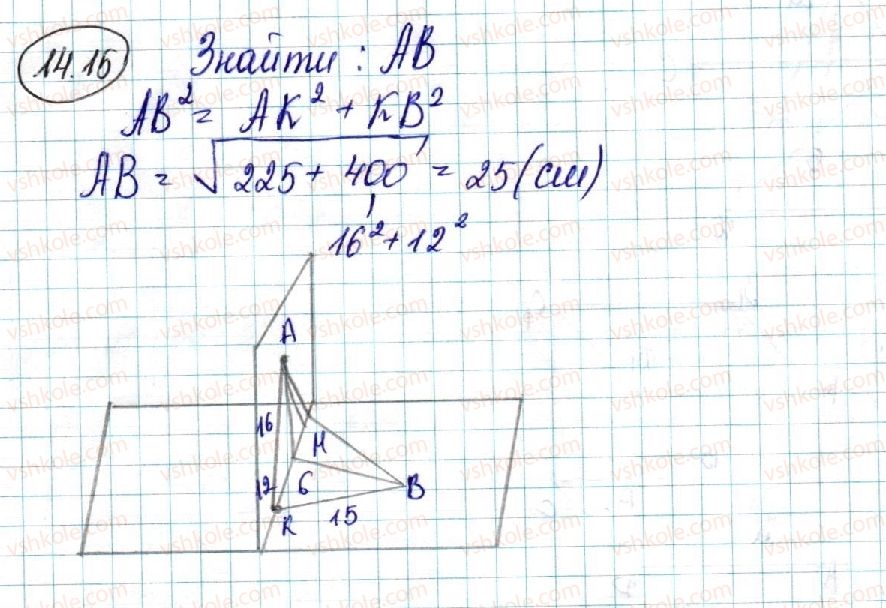 14.15 Знайти : AB
AB² = AK² + KB²
AB = √225 + 400 = 25 (см)
16² + 12²
A
16
H
12 6 B
K 15